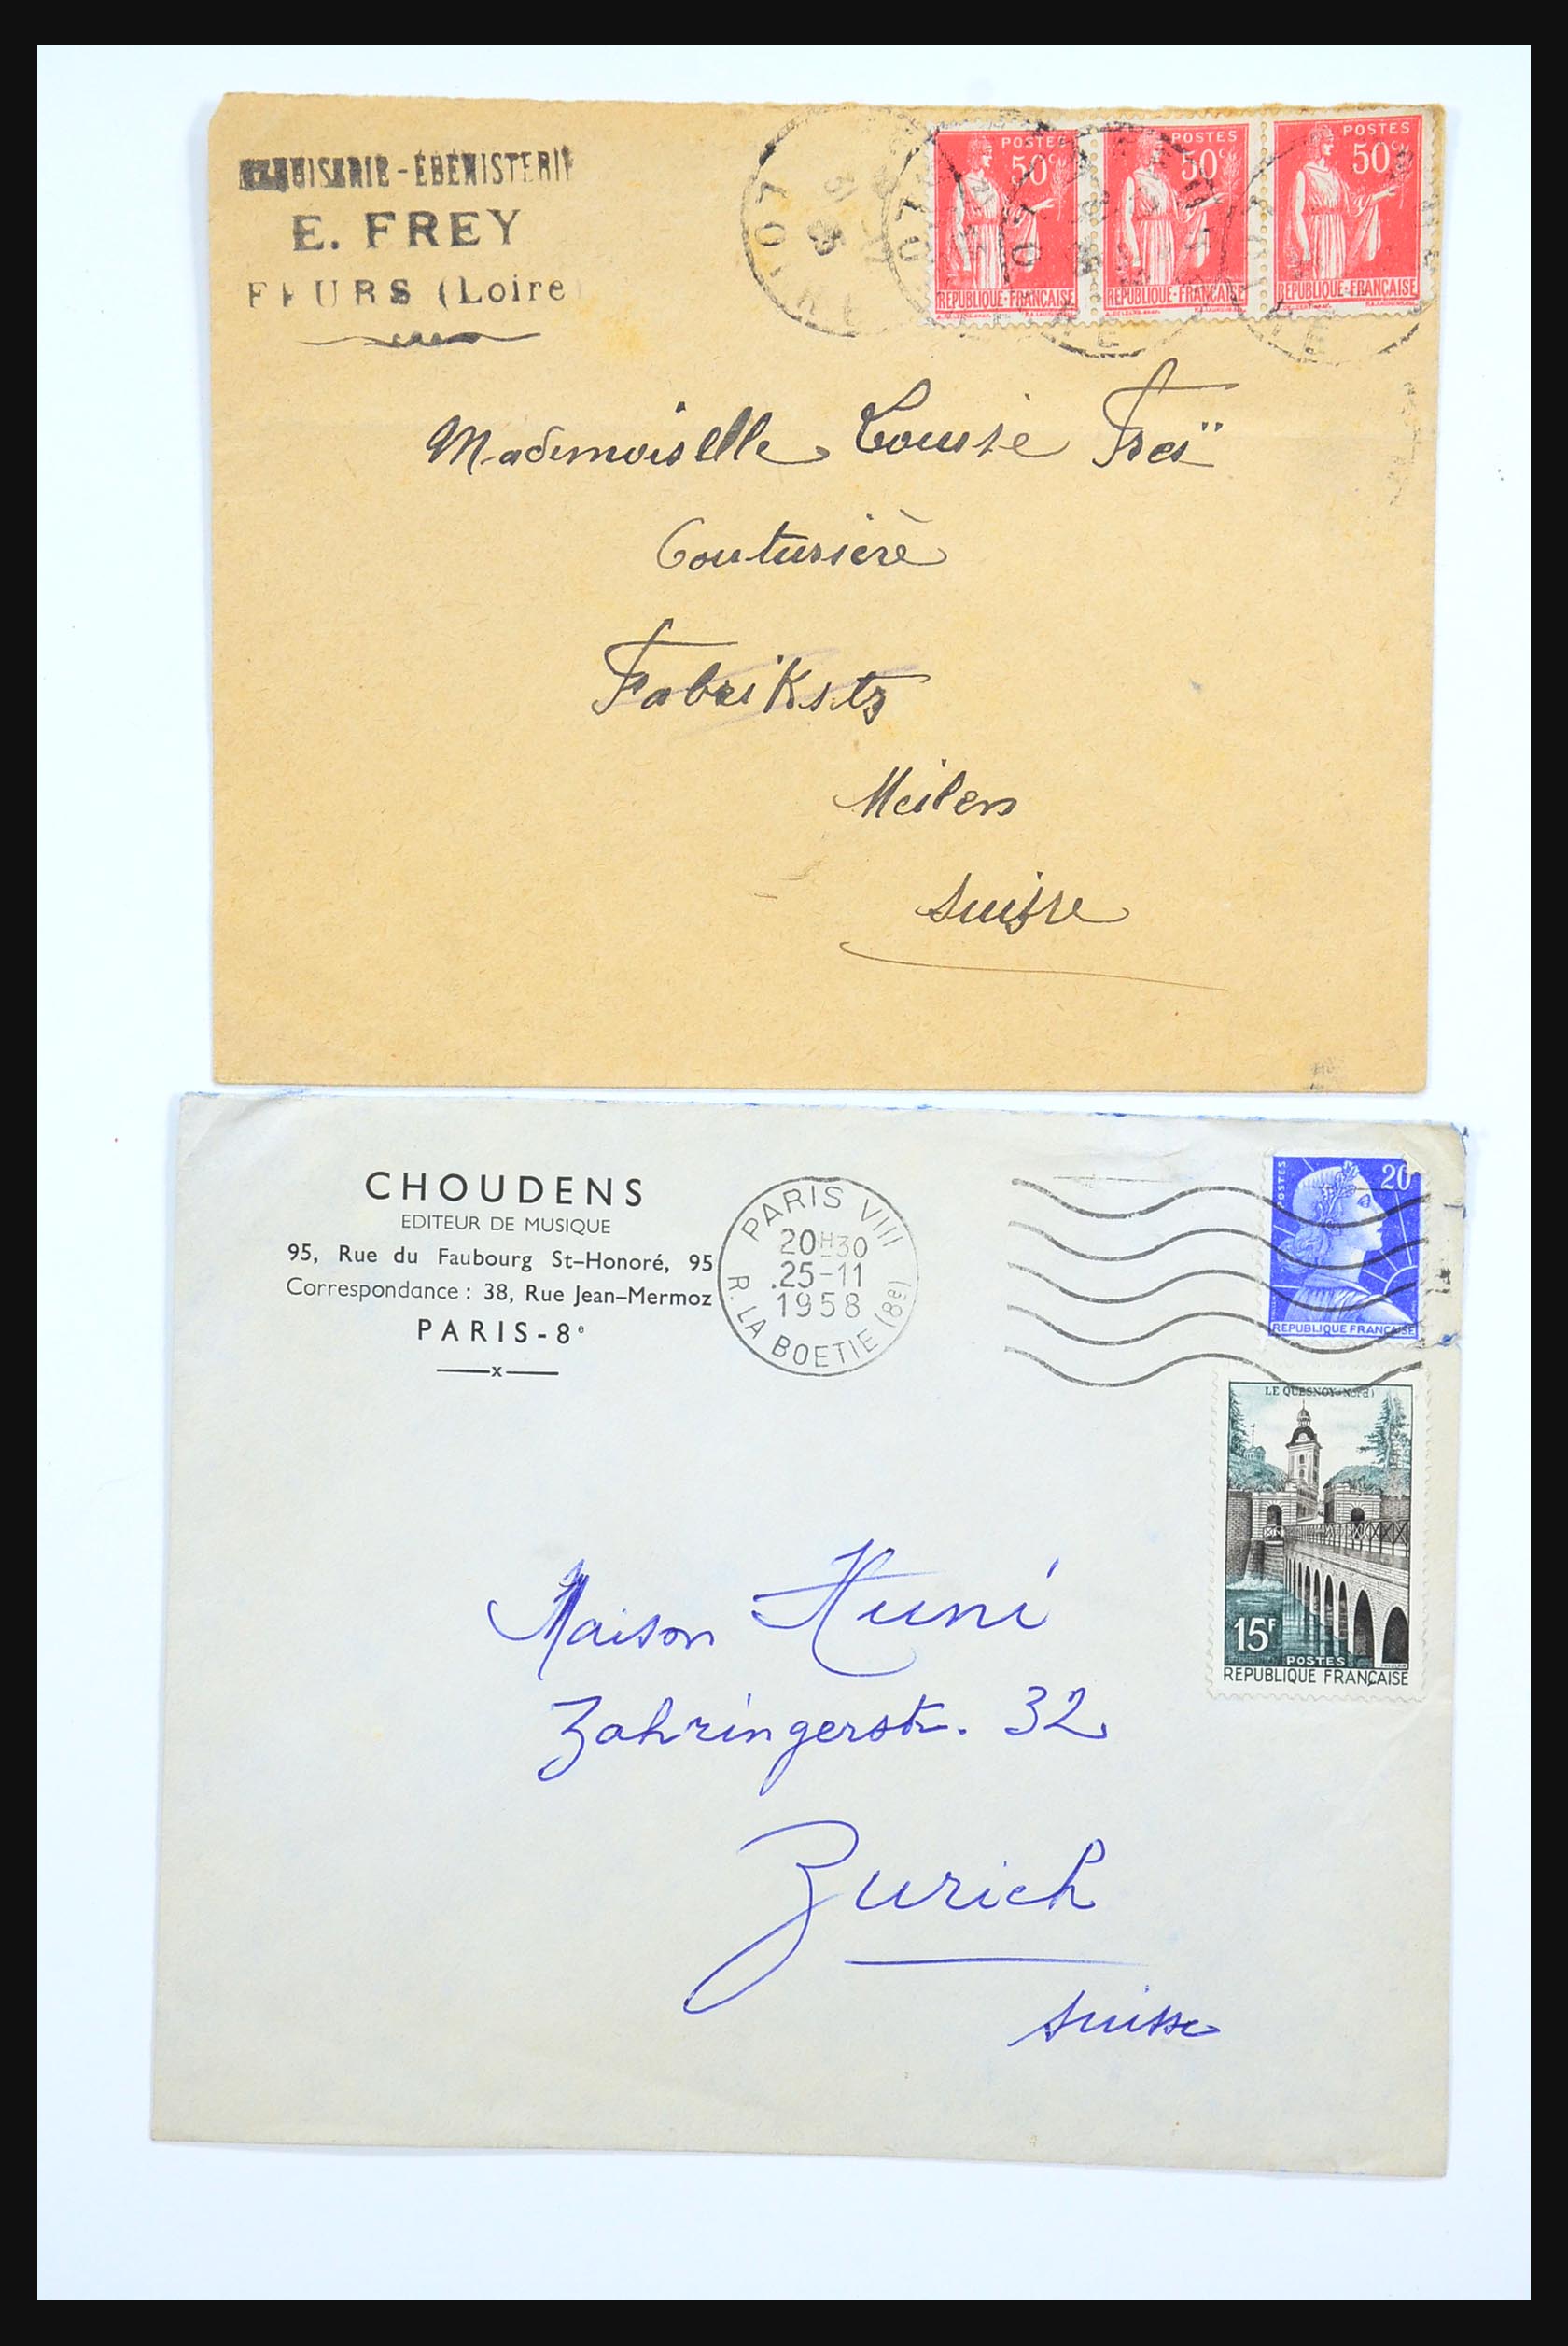 MENUISERIE-ÉBÉNISTERIE
E. FREY
FEURS (Loire)
POSTES
50c
REPUBLIQUE-FRANÇAISE
POSTES
50c
REPUBLIQUE-FRANÇAISE
POSTES
50c
REPUBLIQUE-FRANÇAISE
LOIRE
Mademoiselle Louise Freï
Couturière
Fabrikstr
Meilen
Suisse
CHOUDENS
EDITEUR DE MUSIQUE
95, Rue du Faubourg St-Honoré, 95
Correspondance : 38, Rue Jean-Mermoz
PARIS-8e
x
PARIS VIII
20H30
25-11
1958
R. LA BOETIE (8e)
POSTES
20
REPUBLIQUE FRANÇAISE
LE QUESNOY (Nord)
15F
POSTES
REPUBLIQUE FRANÇAISE
Maison Huni
Zahringerstr. 32
Zurich
Suisse